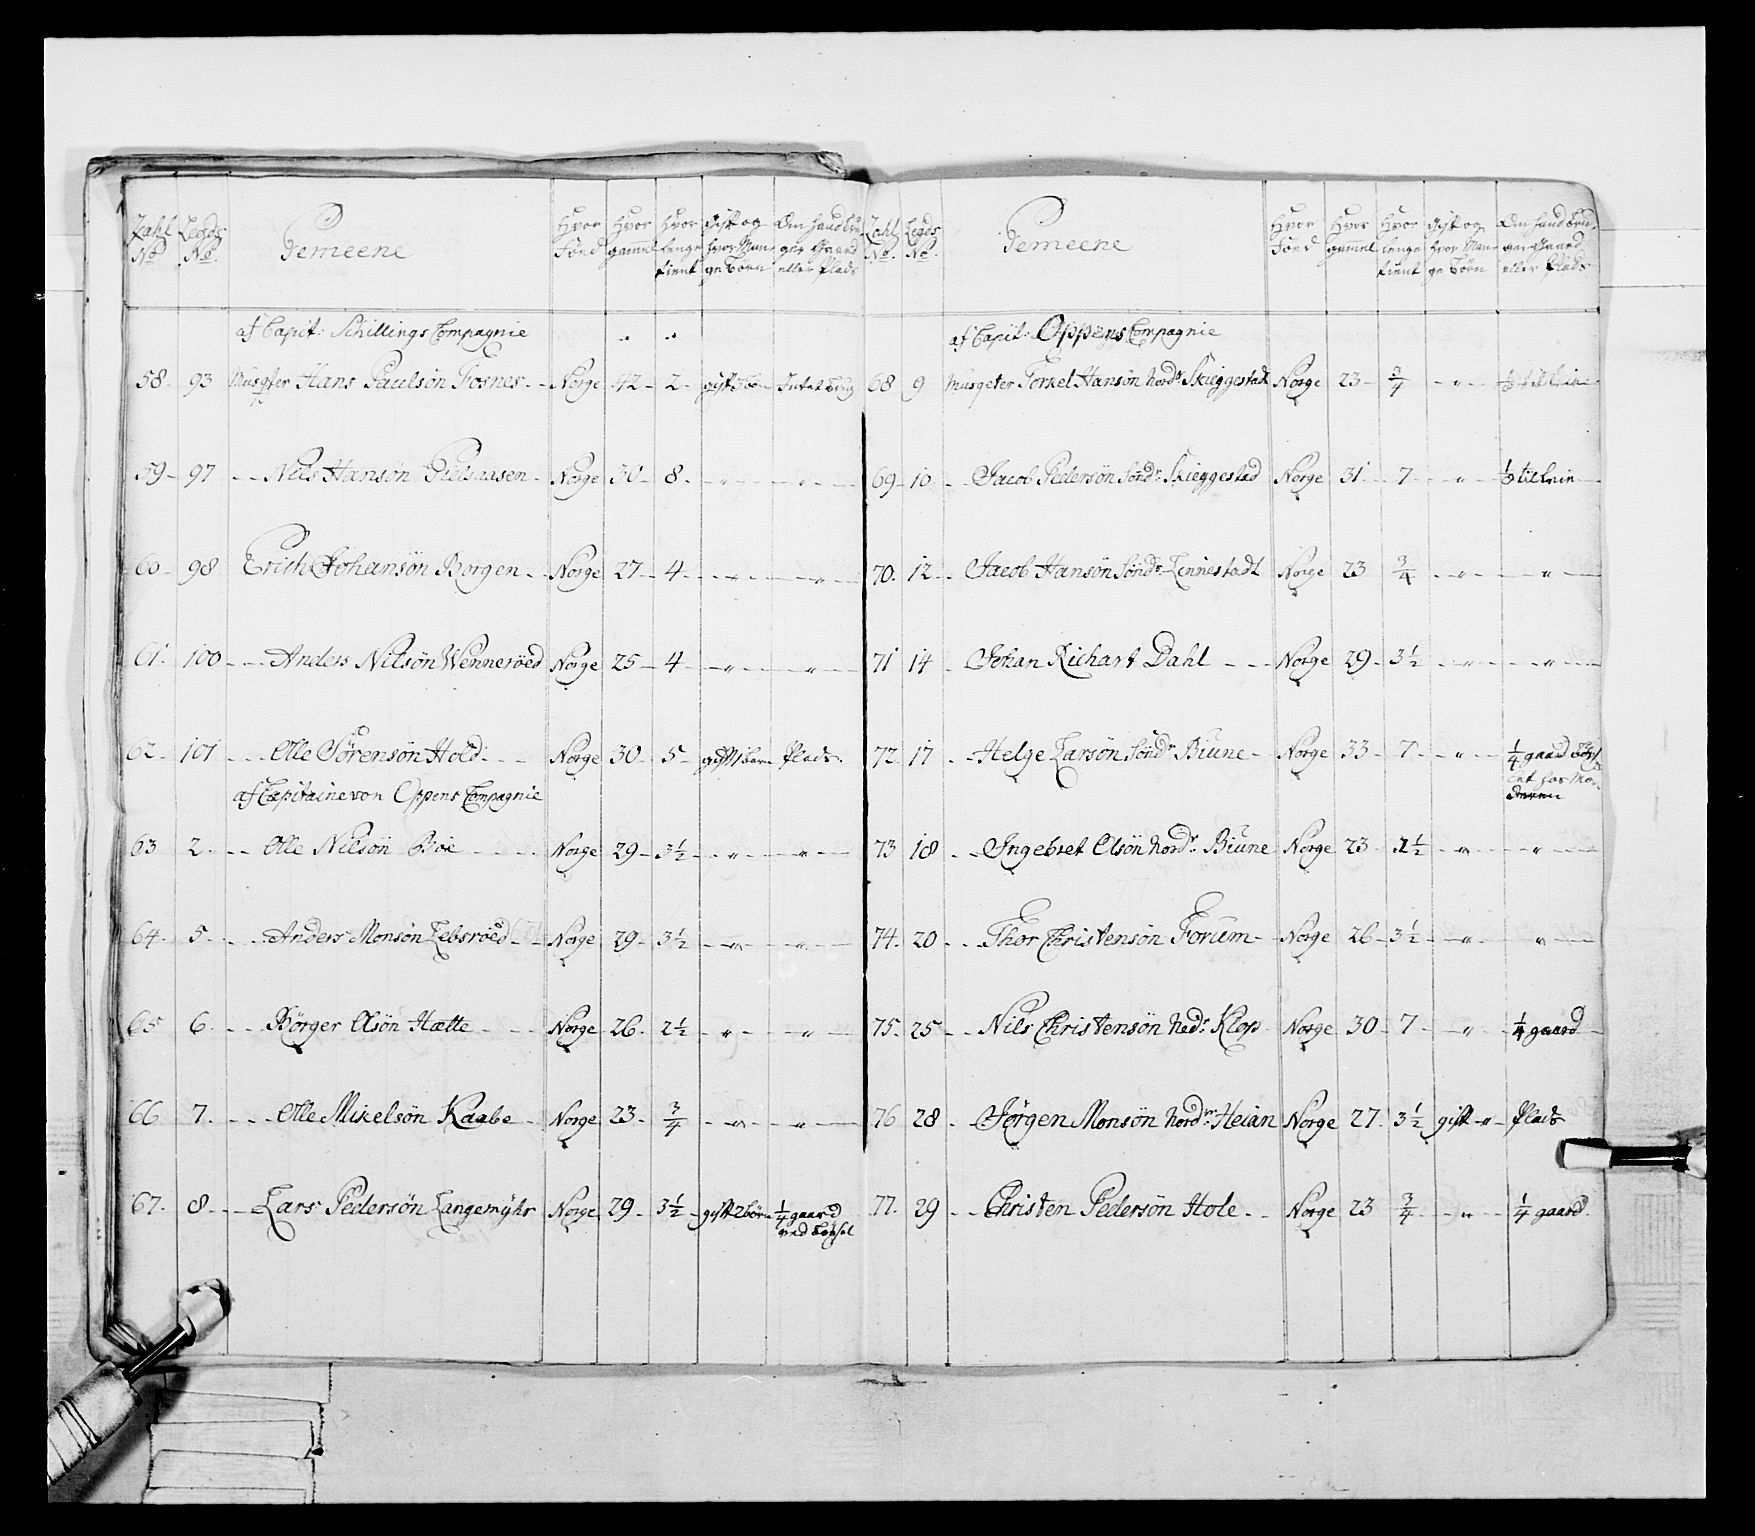 Zahl No Legds No. Gemeene Hvor Fönd Hvor gamel Hvor lenge tient gift og hvor Man ge Börn Om hand bru ger Gaard eller Plads
af Capit: Schillings Compagnie
58. 93 Musqter Hans Paulsön Fosnes Norge 42 2 gift 3 Intet
59 97 Nils Hansön Norge 30 8 " "
60 98 Erich Johansön Borgen Norge 27 4 " "
61. 100 Anders Nilsön Wenneröed Norge 25 4 " "
62 101 Olle Sörensön Hold Norge 30 5 gift 1 barn Plads.
af Capitaine von Oppens Compagnie
63 2. Olle Nilsön Böe Norge 29 3½ " "
64. 5. Anders Monsön Lebsröed Norge 29 3½ " "
65 6. Börger Olsön Hætte Norge 26. 2½ " "
66 7. Olle Mikelsön Kaabe Norge 23 ¾ " "
67. 8 Lars Pedersön Langemÿhr Norge 29 3½ gift 2 börn ¼ gaard
ved böxsel
Zahl No. Legds No. Gemeene Hvor Fönd Hvor gamel Hvor lenge tient gift og hvor Man ge Börn Om hand bru ger Gaard eller Plads
af Capit: Oppens Compagnie
68 9 Musqeter Torkel Hansön Nordr Skieggestadt Norge 23 ¾ " ½ til leie
69 10 Jacob Pedersön Söndr Skieggestad Norge 31 7 " ½ til leie
70. 12 Jacob Hansön Söndr Linnestadt Norge 23 ¾ " "
71 14 Johan Richart Dahl Norge 29 3½ " "
72. 17 Helge Larsön Söndr Biune Norge 33 7 " ¼ gaard
for Mo-
deren
73 18 Ingebret Olsön Nordr Biune Norge 23 1½ " "
74. 20 Thor Christensön Forum Norge 26 3½ " "
75. 25 Nils Christensön Nedr Klop Norge 30 7 " ¼ gaard
76 28 Jörgen Monsön Nordre Heian Norge 27 3½ gift " Plads
77. 29 Christen Pedersön Hole Norge 23 ¾ " ¼ gaard.